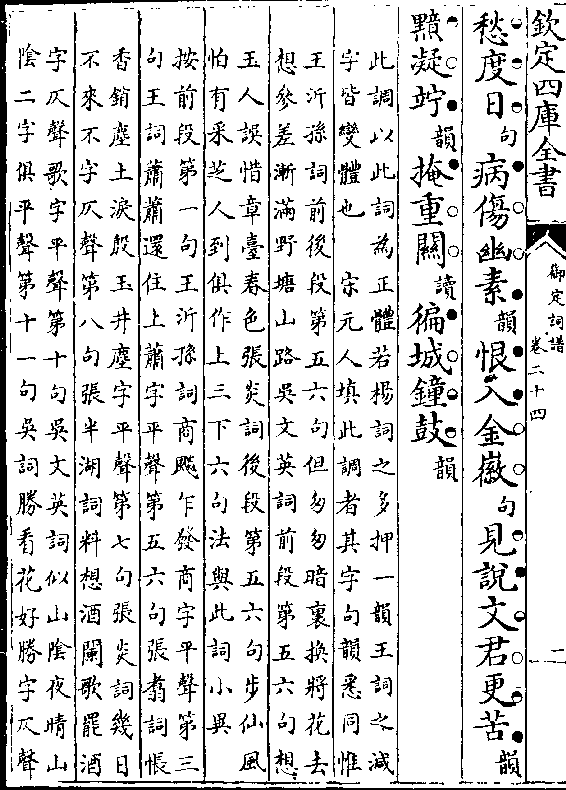 欽定四庫全書
御定詞譜
卷二十四
二
愁度日句病傷幽素韻恨入金徽句見說文君更苦韻
黯凝竚韻掩重關讀徧城鐘鼓韻
此調以此詞為正體若楊詞之多押一韻王詞之減
字皆變體也　宋元人填此調者其字句韻悉同惟
王沂孫詞前後段第五六句但匆匆暗裏換將花去
想參差漸滿野塘山路吳文英詞前段第五六句想
玉人誤惜章臺春色張炎詞後段第五六句步仙風
怕有采芝人到俱作上三下六句法與此詞小異
按前段第一句王沂孫詞商飇乍發商字平聲第三
句王詞蕭蕭還住上蕭字平聲第五六句張翥詞悵
香銷塵土淚殷玉井塵字平聲第七句張炎詞幾日
不來不字仄聲第八句張半湖詞料想酒闌歌罷酒
字仄聲歌字平聲第十句吳文英詞似山陰夜晴山
陰二字俱平聲第十一句吳詞勝看花好勝字仄聲